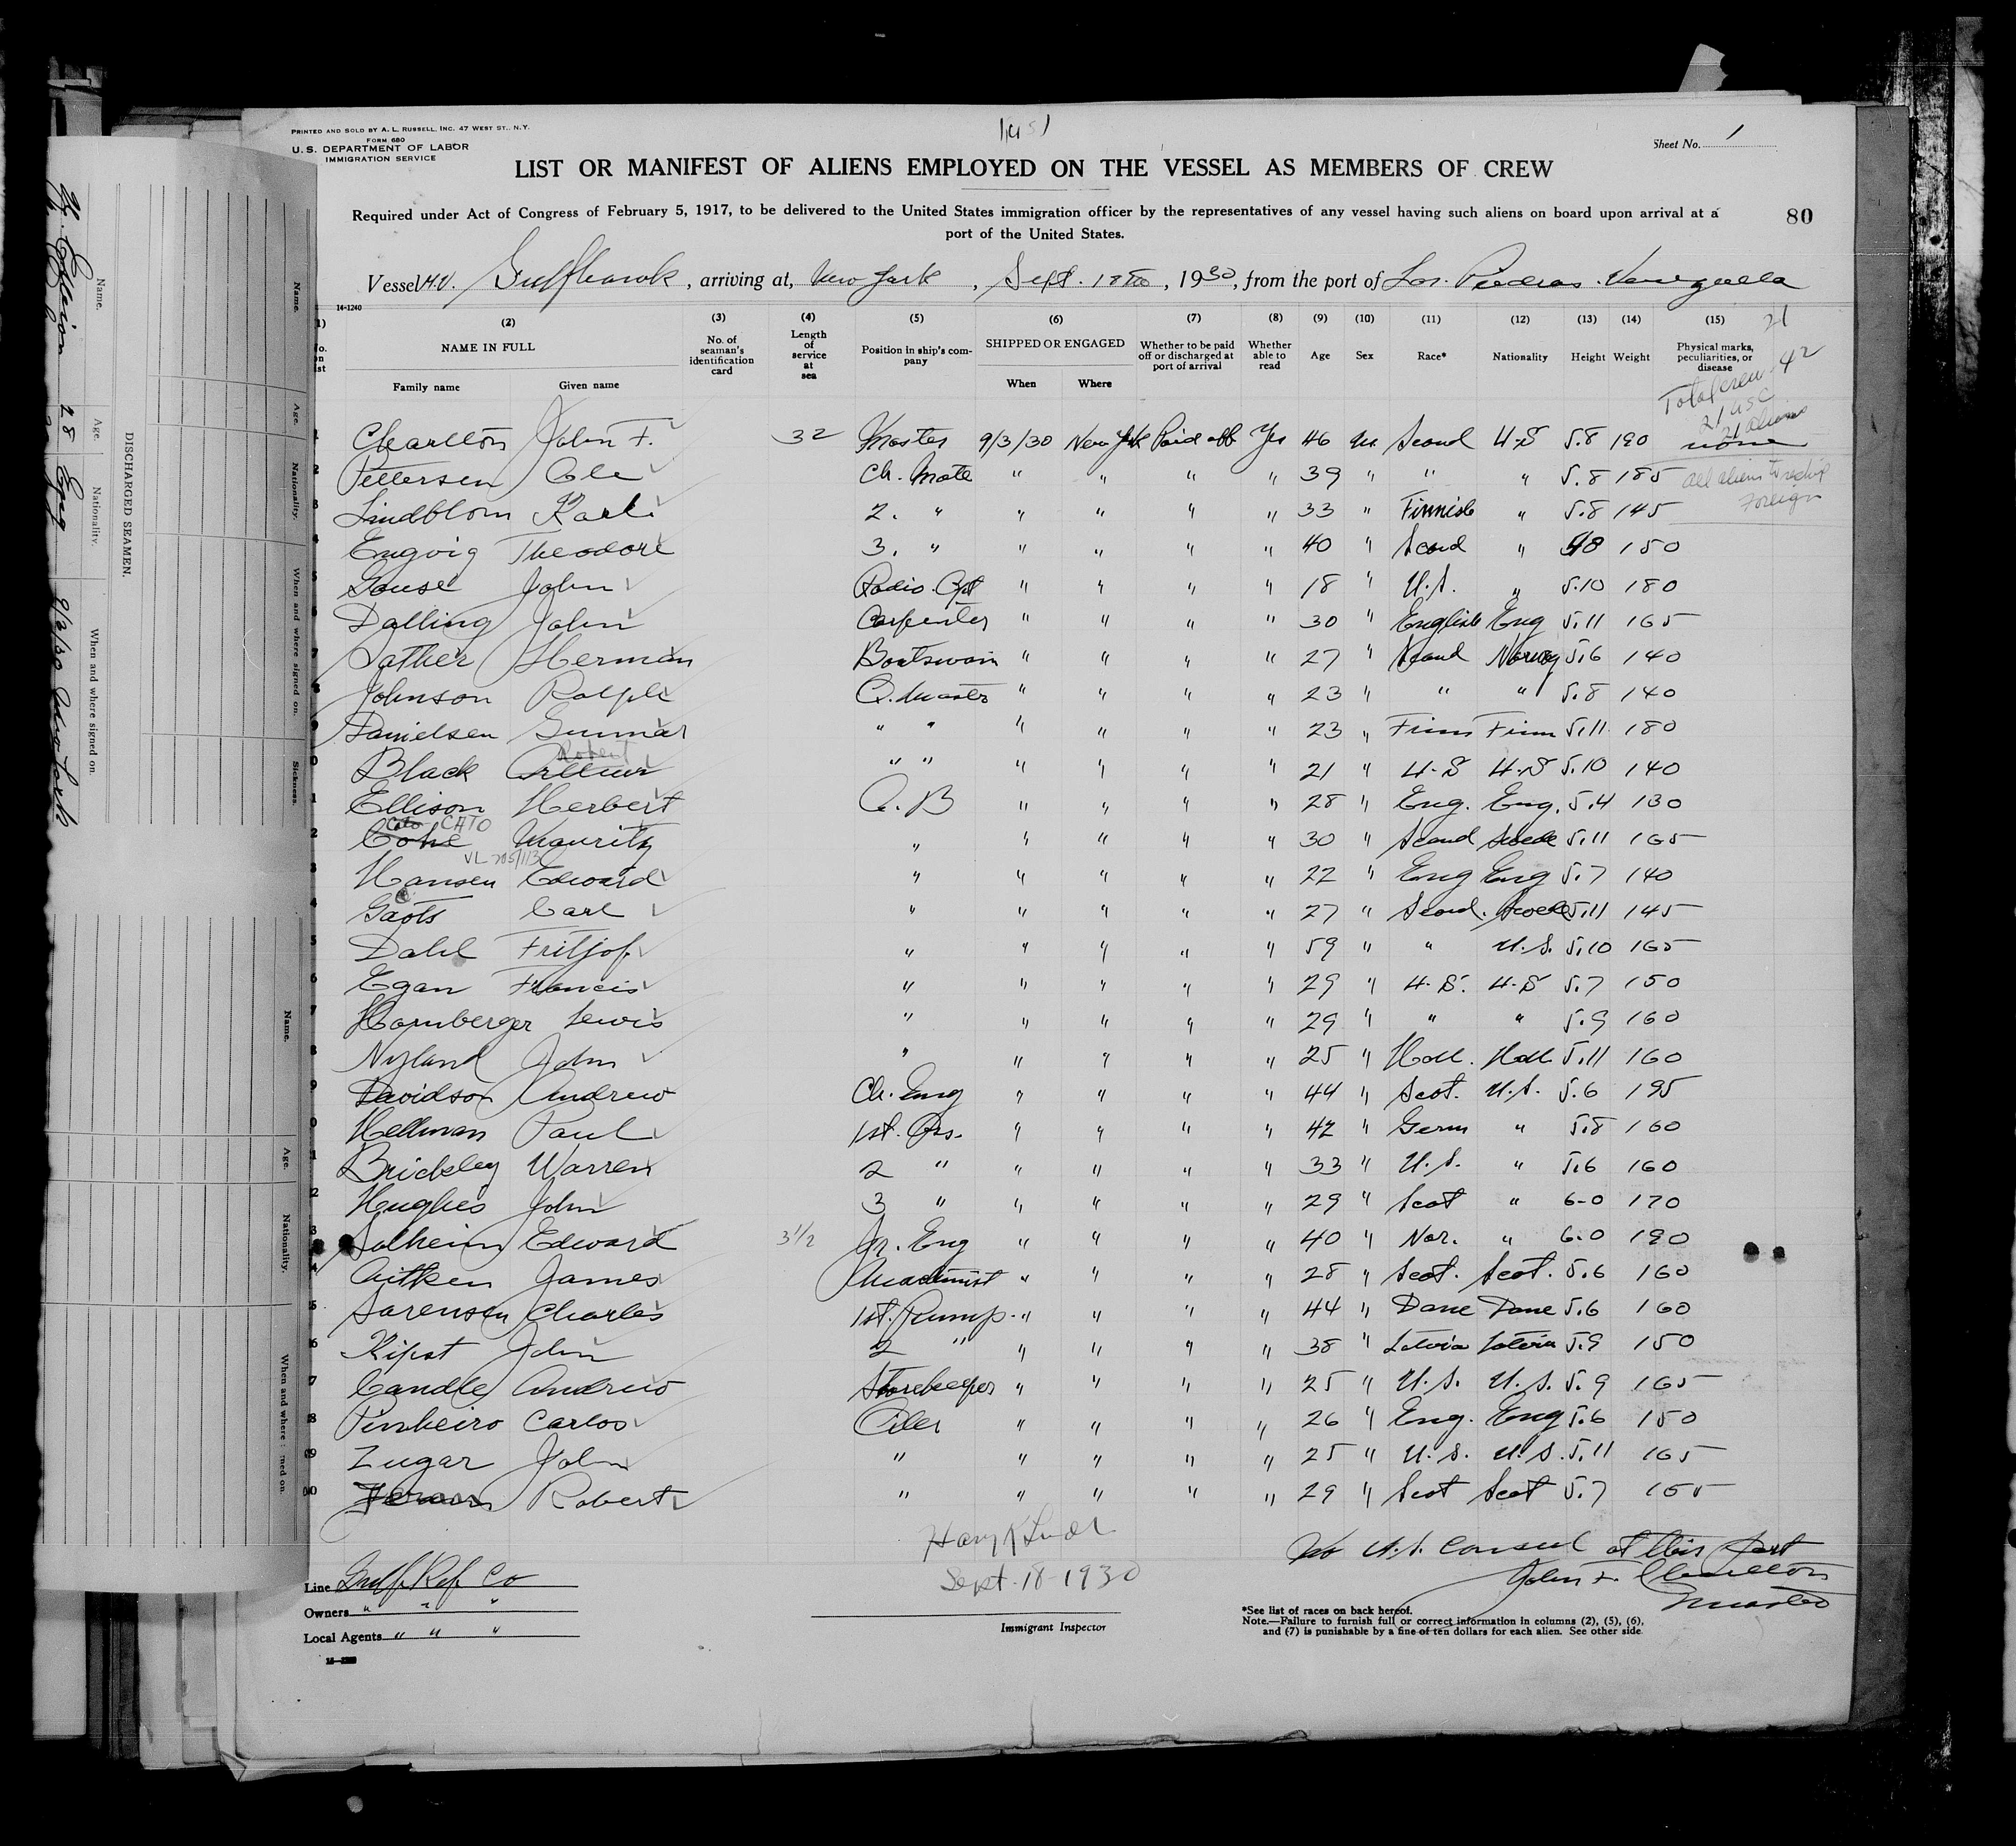 PRINTED AND SOLD BY A. L. RUSSELL, INC. 47 WEST ST., N.Y.
FORM 680
U. S. DEPARTMENT OF LABOR
IMMIGRATION SERVICE
Sheet No. 1
LIST OR MANIFEST OF ALIENS EMPLOYED ON THE VESSEL AS MEMBERS OF CREW
Required under Act of Congress of February 5, 1917, to be delivered to the United States immigration officer by the representatives of any vessel having such aliens on board upon arrival at a
port of the United States.
80
Vessel Gulfhawk, arriving at, New York, Sept. 18th, 1930, from the port of Las Piedras Venezuela
14-1240
(2) (3) (4) (5) (6) (7) (8) (9) (10) (11) (12) (13) (14) (15)
NAME IN FULL
Family name Given name
No. of seaman's identification card
Length of service at sea
Position in ship's company
SHIPPED OR ENGAGED
When Where
Whether to be paid off or discharged at port of arrival
Whether able to read
Age Sex Race* Nationality Height Weight
Physical marks, peculiarities, or disease
21
42
Total crew
21 USC
21 Aliens
Charlton John F. 32 Master 9/3/30 New York Paid off Yes 46 M Scand U.S 5.8 190 none
Pettersen Ole Ch. Mate " " " " 39 " " " 5.8 185
all aliens
Foreign
Lindblom Karl 2. " " " " " 33 " Finnish " 5.8 145
Engvig Theodore 3. " " " " " 40 " Scand " 150
Gouse John Radio Opt " " " " 18 " U.S. " 5.10 180
Dalling John Carpenter " " " " 30 " English Eng 5.11 165
Sather Herman Boatswain " " " " 27 " Scand Norwg 5.6 140
Johnson Ralph Q. Master " " " " 23 " " " 5.8 140
Danielsen Gunnar " " " " " " 23 " Finn Finn 5.11 180
Robert
Black Arthur " " " " " " 21 " U.S U.S 5.10 140
Ellison Herbert A.B " " " " 28 " Eng. Eng. 5.4 130
CATO
Mauritz " " " " " 30 " Scand Swede 5.11 165
Hansen Edward " " " " " 22 " Eng Eng 5.7 140
Gaots Carl " " " " " 27 " Scand. Swede 5.11 145
Dahl Fritjof. " " " " " 59 " " U.S. 5.10 165
Egan Francis " " " " " 29 " U.S. U.S 5.7 150
Hornberger Lewis " " " " " 29 " " " 5.9 160
Nyland John " " " " " 25 " Holl. Holl 5.11 160
Davidson Andrew Ch. Eng " " " " 44 " Scot. U.S. 5.6 195
Hellman Paul 1st. Ass. " " " " 42 " Germ " 5.8 160
Brickley Warren 2 " " " " " 33 " U.S. " 5.6 160
Hughes John 3 " " " " " 29 " Scot " 6-0 170
Solheim Edward 3 1/2 Jr. Eng " " " " 40 " Nor. " 6.0 190
Aitken James Machinist " " " " 28 " Scot. Scot. 5.6 160
Sorensen Charles 1st. Pump. " " " " 44 " Dane Dane 5.6 160
Kipst John 2 " " " " " 38 " Latvia Latvia 5.9 150
Candle Andrew Storekeeper " " " " 25 " U.S. U.S. 5.9 165
Pinheiro Carlos Oiler " " " " 26 " Eng. Eng 5.6 150
Zugar John " " " " " 25 " U.S. U.S. 5.11 165
Robert " " " " " 29 " Scot Scot 5.7 155
Sept-18-1930
No U.S. Consul at this port
John F. Charlton
Master
Line Gulf. Ref. Co
Owners " " "
Local Agents " " "
Immigrant Inspector
*See list of races on back hereof.
Note.—Failure to furnish full or correct information in columns (2), (5), (6),
and (7) is punishable by a fine of ten dollars for each alien. See other side.
DISCHARGED SEAMEN.
Name. Age. Nationality. When and where signed on.
H. Ellison 28 Eng 9/3/30 New York
Name. Age. Nationality. When and where signed on. Sickness.
Name. Age. Nationality.